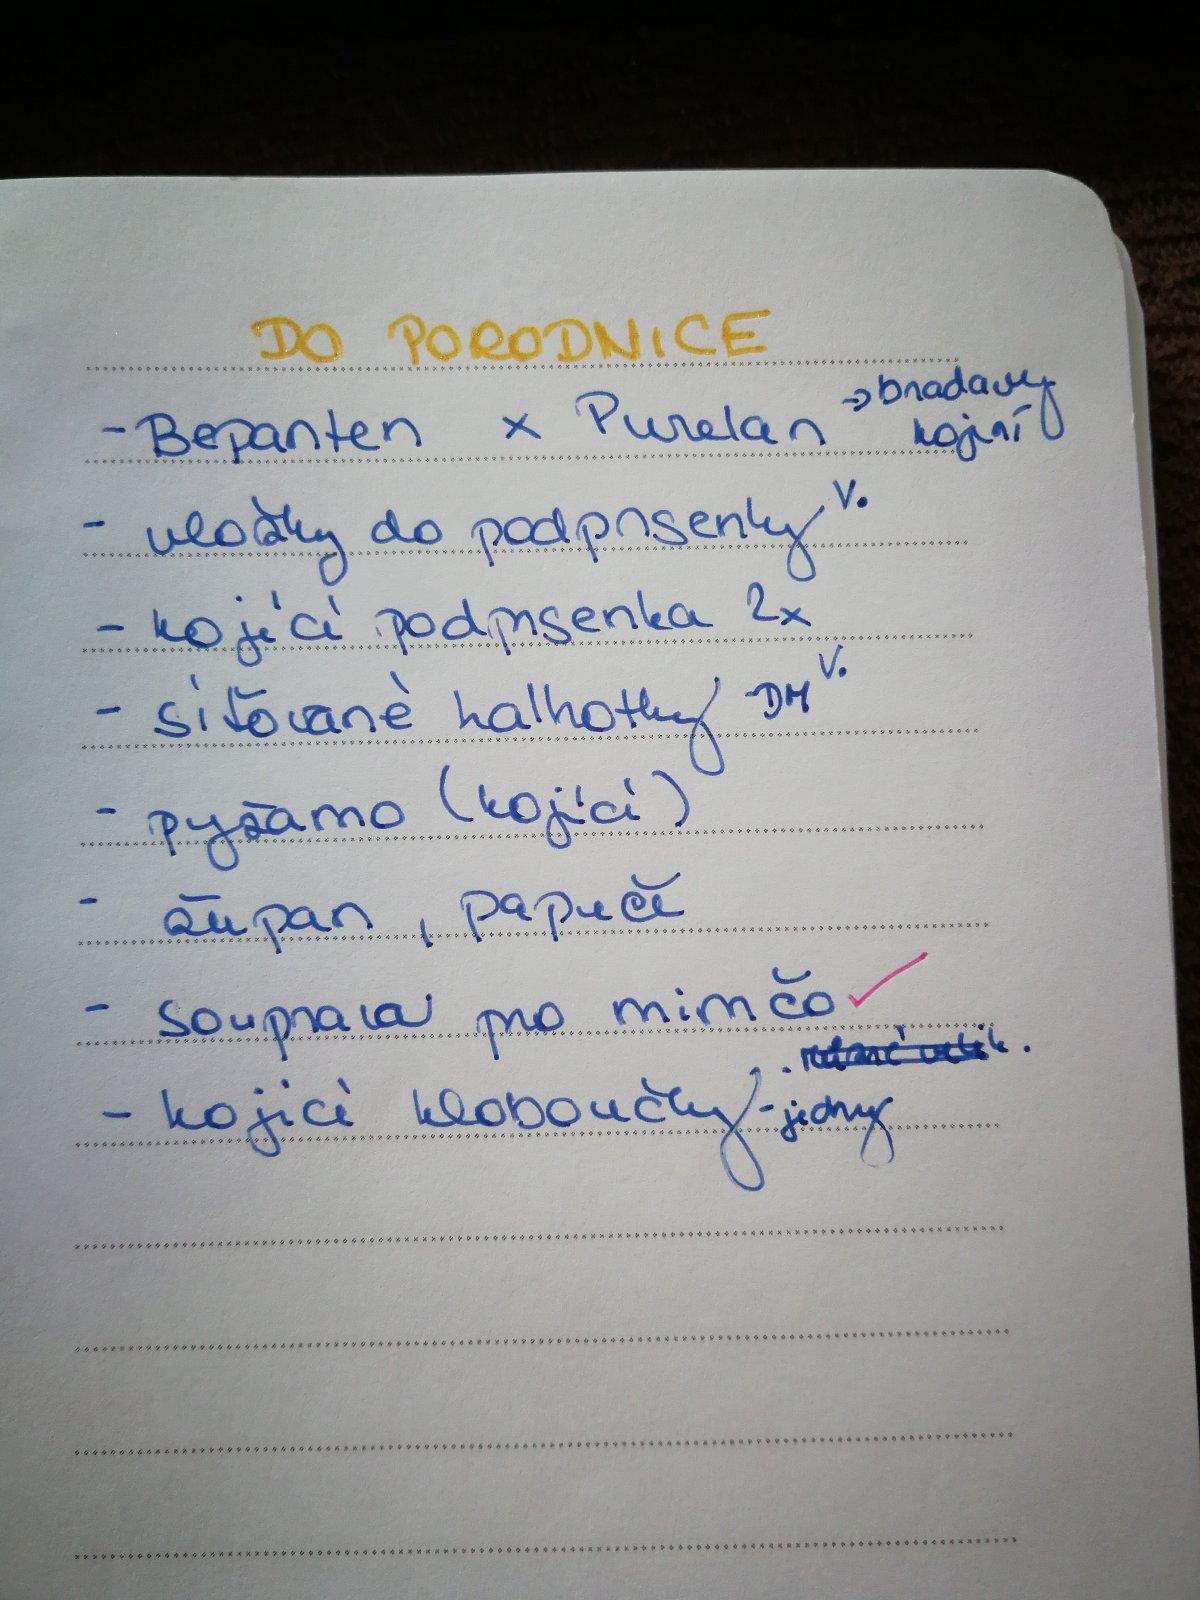 DO PORODNICE
- Bepanten x Purelan → bradavky
kojení
- vložky do podprsenky V.
- kojící podprsenka 2x
- síťované kalhotky - DM V.
- pyžamo (kojící)
- župan, papuče
- souprava pro mimčo ✓
- kojící kloboučky - jedny